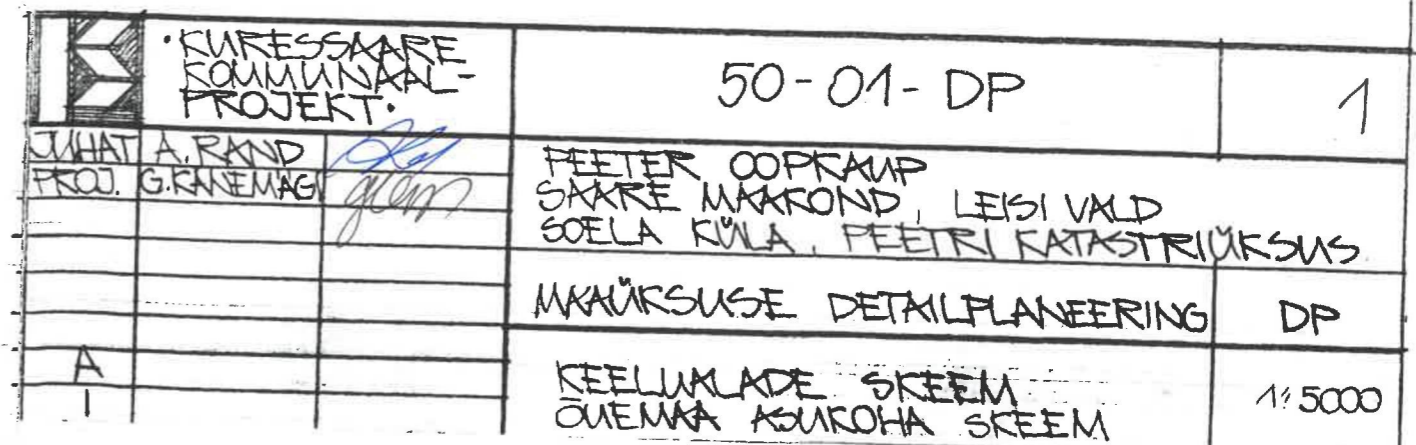 ·KURESSAARE
KOMMUNAAL-
PROJEKT·
50-01-DP
1
JUHAT A. RAND
PROJ. G. KANEMÄGI
PEETER OOPKAUP
SAARE MAAKOND, LEISI VALD
SOELA KÜLA, PEETRI KATASTRIÜKSUS
MAAÜKSUSE DETAILPLANEERING
DP
A
1
KEELUALADE SKEEM
ÕUEMAA ASUKOHA SKEEM
1:5000